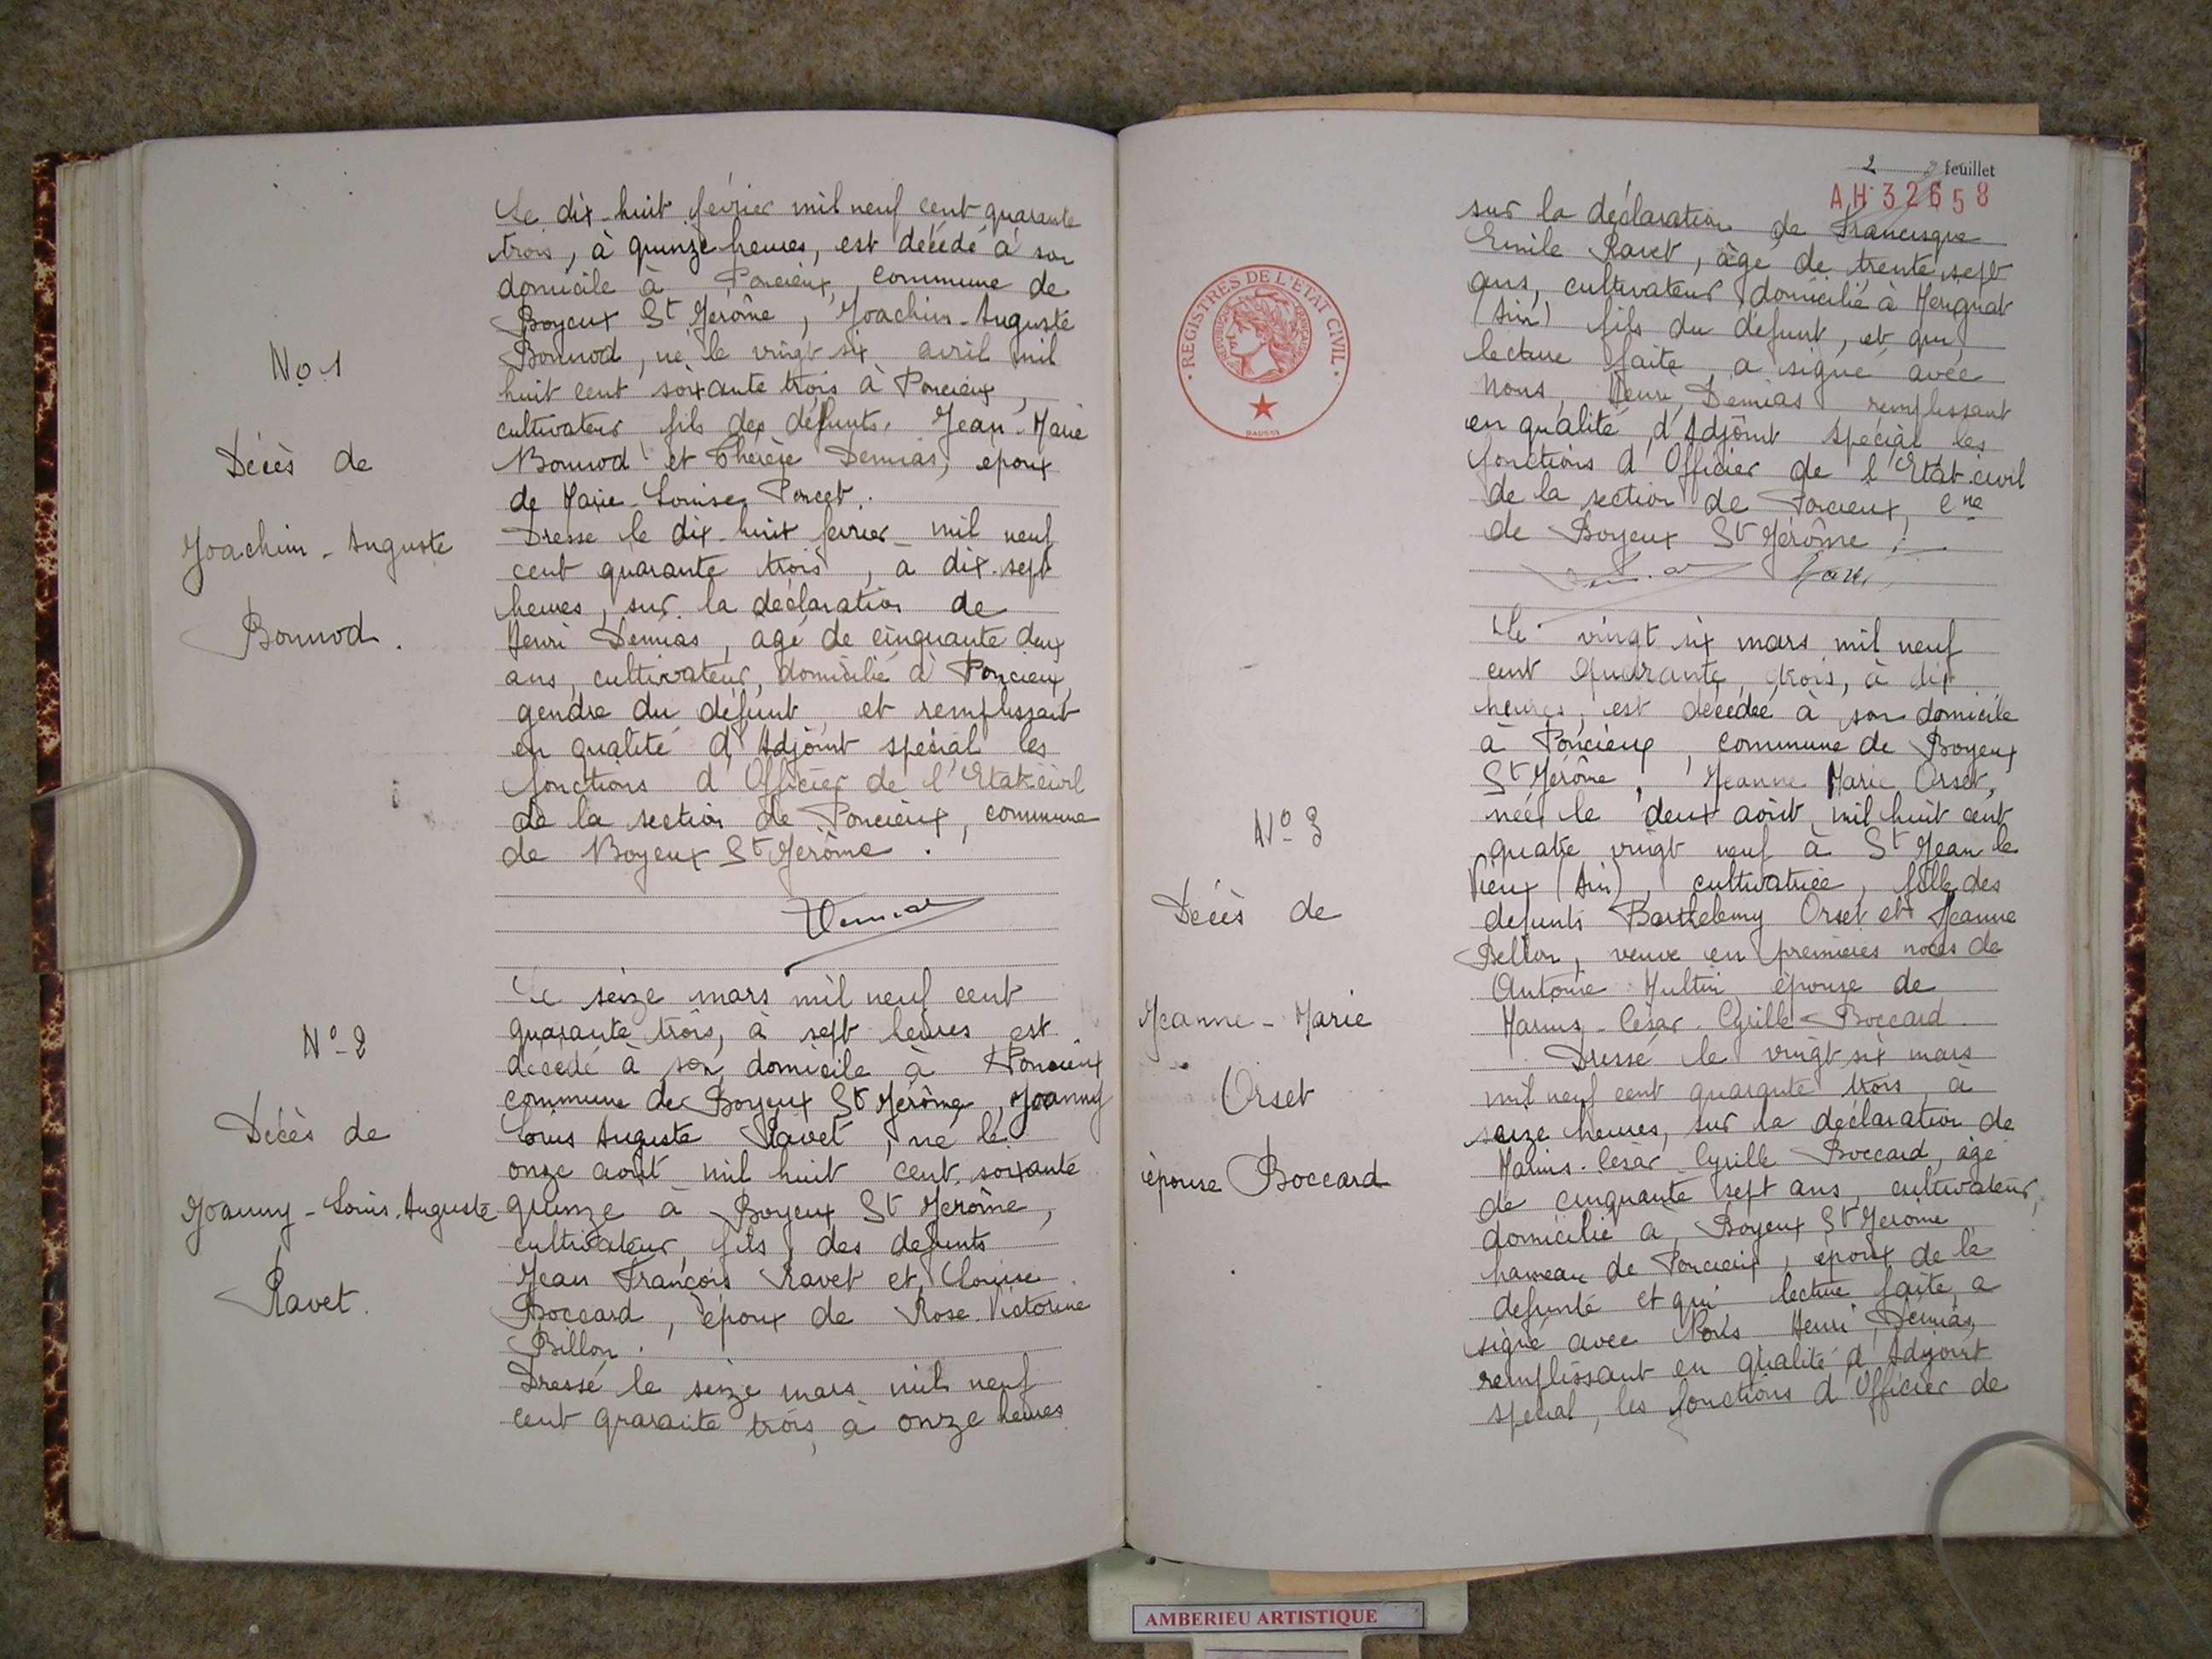 No 1
Décès de
Joachim-Auguste
Bonnod.
Le dix-huit février mil neuf cent quarante
trois, à quinze heures, est décédé à son
domicile à Poncieux, commune de
Boyeux St Jérôme, Joachim-Auguste
Bonnod, né le vingt six avril mil
huit cent soixante trois à Poncieux,
cultivateur fils des défunts Jean-Marie
Bonnod et Thérèse Demias, epoux
de Marie-Louise Porcet.
Dressé le dix-huit fevrier mil neuf
cent quarante trois, a dix-sept
heures, sur la declaration de
Henri Demias, agé de cinquante deux
ans, cultivateur, domicilié à Poncieux,
gendre du défunt, et remplissant
en qualité d'Adjoint spécial les
fonctions d'Officier de l'Etat-civil
de la section de Poncieux, commune
de Boyeux St Jérôme.
Demias
N° 2
Décès de
Joanny-Louis-Auguste
Ravet.
Le seize mars mil neuf cent
quarante trois, à sept heures est
décédé à son domicile à Poncieux
commune de Boyeux St Jérôme, Joanny
Louis Auguste Ravet, né le
onze août mil huit cent soixante
quinze à Boyeux St Jerôme,
cultivateur, fils des defunts
Jean François Ravet et Louise
Boccard, époux de Rose Victorine
Billon.
Dressé le seize mars mil neuf
cent quarante trois, à onze heures
2 feuillet
AH 32658
REGISTRES DE L'ETAT CIVIL
sur la déclaration de Francisque
Emile Ravet, âgé de trente sept
ans, cultivateur domicilié à Mérignat
(Ain) fils du défunt, et qui,
lecture faite, a signé avec
nous, Henri Demias remplissant
en qualité d'Adjoint spécial les
fonctions d'Officier de l'Etat-civil
de la section de Poncieux, Cne
de Boyeux St Jérôme.
N° 3
Décès de
Jeanne-Marie
Orset
épouse Boccard
Le vingt six mars mil neuf
cent quarante trois, à dix
heures, est décédée à son domicile
à Poncieux, commune de Boyeux
St Jérôme, Jeanne Marie Orset,
née le deux août mil huit cent
quatre vingt neuf à St Jean le
Vieux (Ain), cultivatrice, fille des
defunts Barthelemy Orset et Jeanne
Bellon, veuve en premieres noces de
Antoine Multin épouse de
Marius-César-Cyrille Boccard.
Dressé le vingt six mars
mil neuf cent quarante trois, à
seize heures, sur la déclaration de
Marius-César Cyrille Boccard, agé
de cinquante sept ans, cultivateur,
domicilié à Boyeux St Jerome
hameau de Poncieux, epoux de la
defunte et qui lecture faite, a
signé avec Nous Henri Demias,
remplissant en qualité d'Adjoint
spécial, les fonctions d'Officier de
AMBERIEU ARTISTIQUE